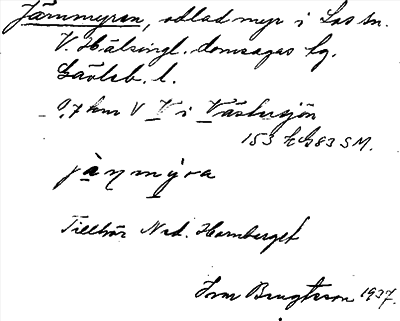 Järnmyran, odlad myr i Los sn.
V. Hälsingl. domsagas hg.
Gävleb. l.
0,7 km V V i Västersjön
153 h G83 SM.
jànmýra
Tillhör Ned. Hamberget
Bengtsson 1937.